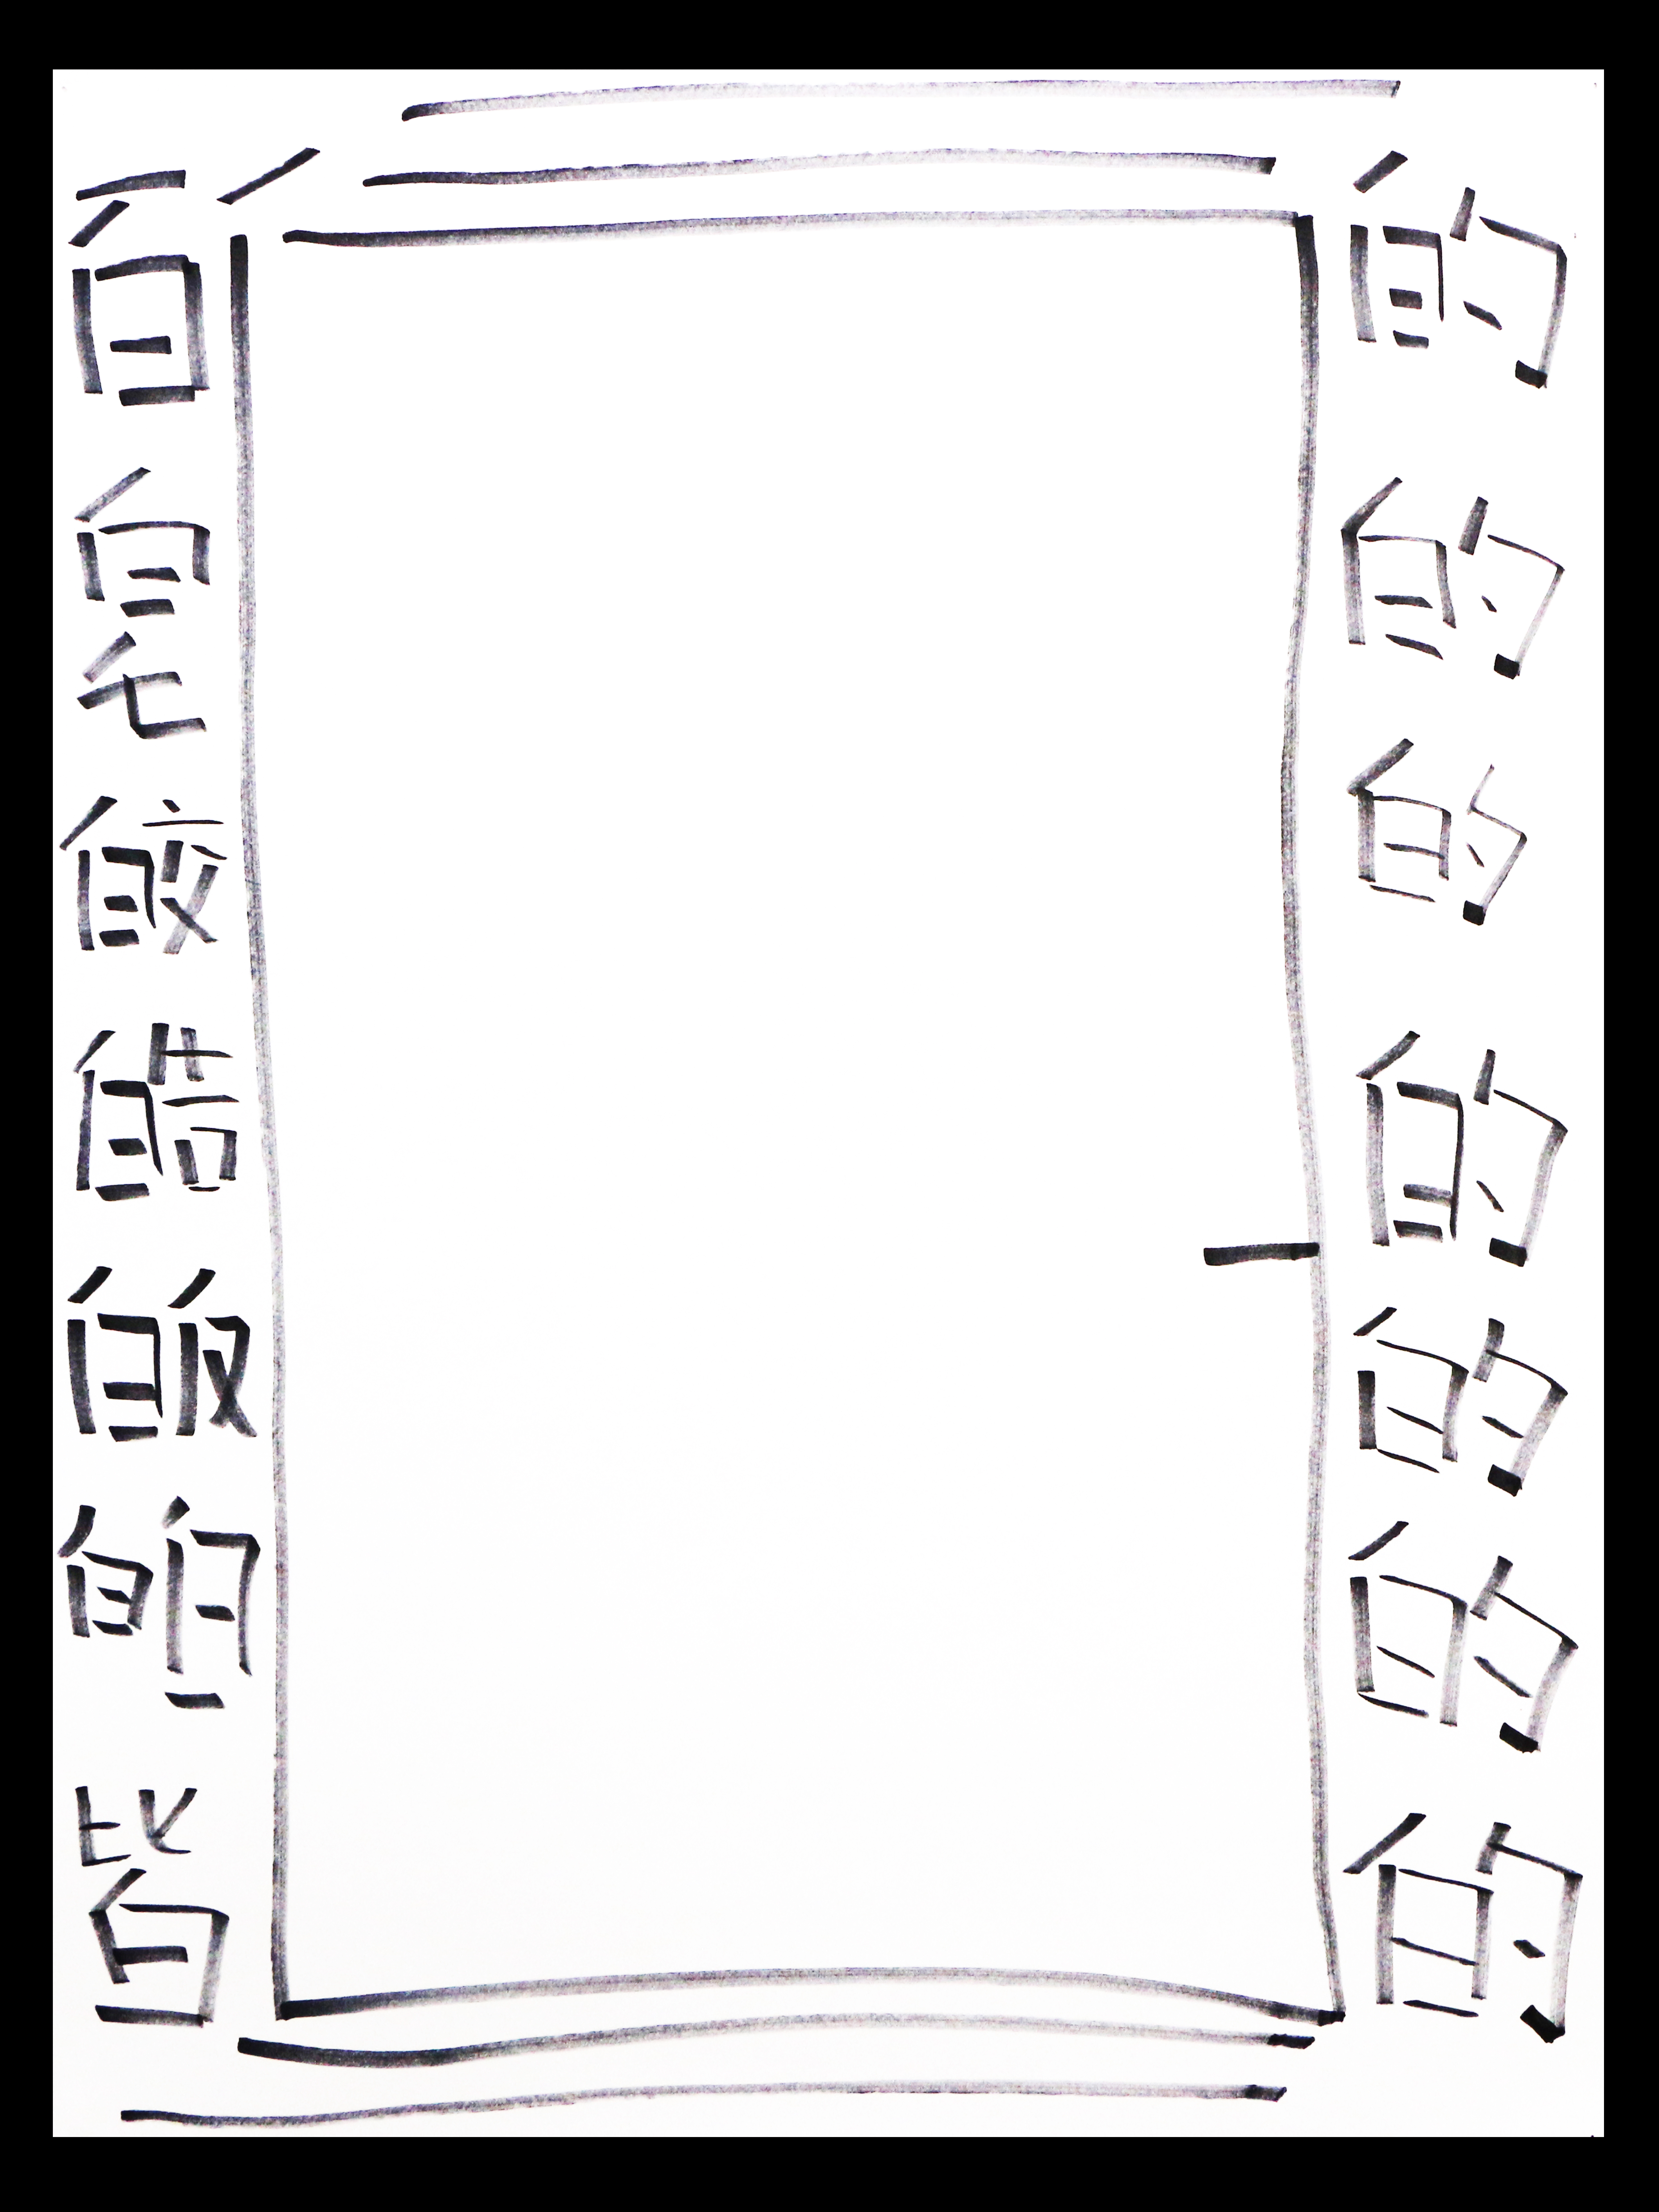 百皎皓皈皆
的的的的的的的